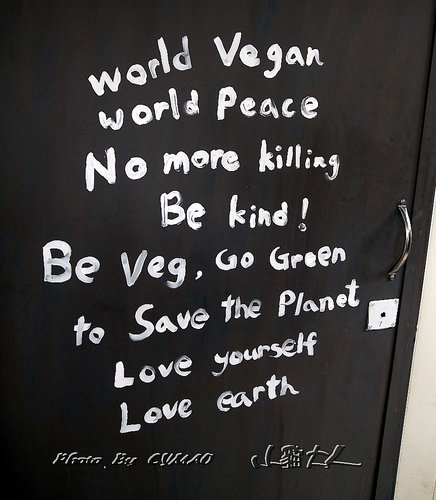 world Vegan
world Peace
No more killing
Be kind!
Be Veg, Go Green
to Save the Planet
Love yourself
Love earth
Photo By CYMAO 小貓大人